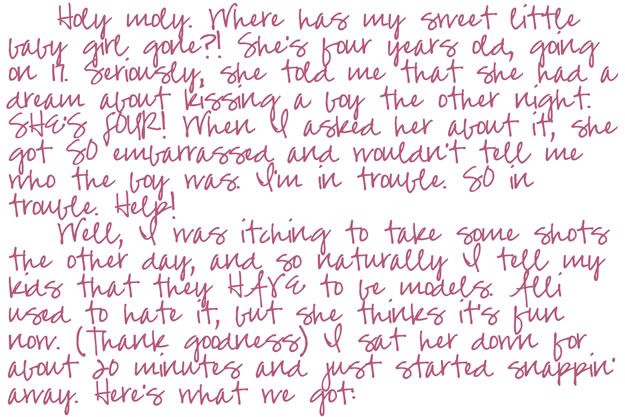 Holy moly. Where has my sweet little
baby girl gone?! She's four years old, going
on 17. Seriously, she told me that she had a
dream about kissing a boy the other night.
SHE'S FOUR! When I asked her about it, she
got SO embarrassed and wouldn't tell me
who the boy was. I'm in trouble. SO in
trouble. Help!
Well, I was itching to take some shots
the other day, and so naturally I tell my
kids that they HAVE to be models. Alli
used to hate it, but she thinks it's fun
now. (Thank goodness) I sat her down for
about 20 minutes and just started snappin'
away. Here's what we got: